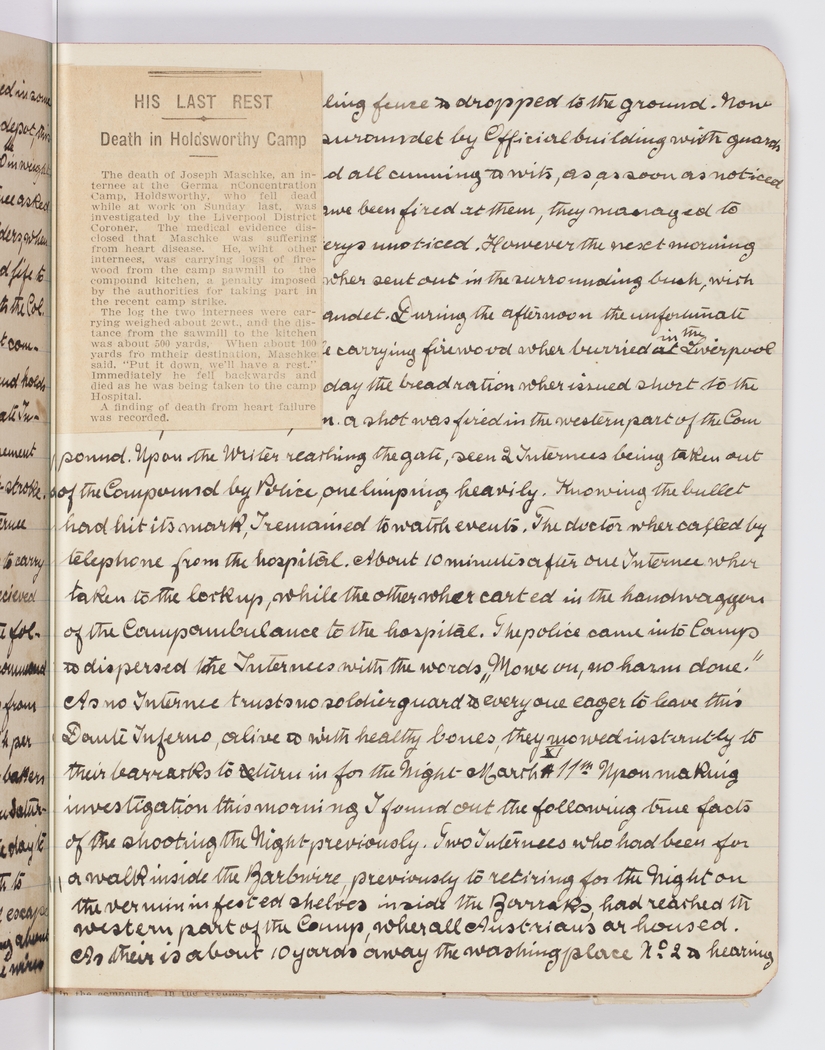 HIS LAST REST
Death in Holdsworthy Camp
The death of Joseph Maschke, an in-
ternee at the Germa nConcentration
Camp, Holdsworthy, who fell dead
while at work on Sunday last, was
investigated by the Liverpool District
Coroner. The medical evidence dis-
closed that Maschke was suffering
from heart disease. He, wiht other
internees, was carrying logs of fire-
wood from the camp sawmill to the
compound kitchen, a penalty imposed
by the authorities for taking part in
the recent camp strike.
The log the two internees were car-
rying weighed about 2cwt., and the dis-
tance from the sawmill to the kitchen
was about 500 yards. When about 100
yards fro mtheir destination, Maschke
said, "Put it down, we'll have a rest."
Immediately he fell backwards and
died as he was being taken to the camp
Hospital.
A finding of death from heart failure
was recorded.
ling fence & dropped to the ground. Now
suroundet by Official building with guards
d all cunning & wits, as, as soon as noticed
awe been fired at them, they managed to
erys unoticed. However the next morning
wher sent out in the surrounding bush, with
andet. During the afternoon the unfortunate
e carrying firewood wher burried at in the Liverpool
day the bread ration wher issued short to the
n. a shot was fired in the western part of the Com
pound. Upon the Writer reaching the gate, seen 2 Internees being taken out
of the Compound by Police, one limping heavily. Knowing the bullet
had hit its mark, I remained to watch events. The doctor wher called by
telephone from the hospital. About 10 minutes after one Internee wher
taken to the lockup, while the other wher carted in the handwaggon
of the Campambulance to the hospital. The police came into Camp
& dispersed the Internees with the words, „Mowe on, no harm done."
As no Internee trusts no soldier guard & everyone eager to leave this
Dante Inferno, alive & with healthy bones, they mowed instantly to
their barracks to return in for the Night. March XI 11th Upon making
investigation this morning I found out the following true facts
of the shooting the Night previously. Two Internees who had been for
a walk inside the Barbwire, previously to retiring for the Night on
the vermin infested shelves inside the Barraks, had reached th
western part of the Camp, wher all Austrians ar housed.
As their is about 10 yards away the washing place No 2 & hearing